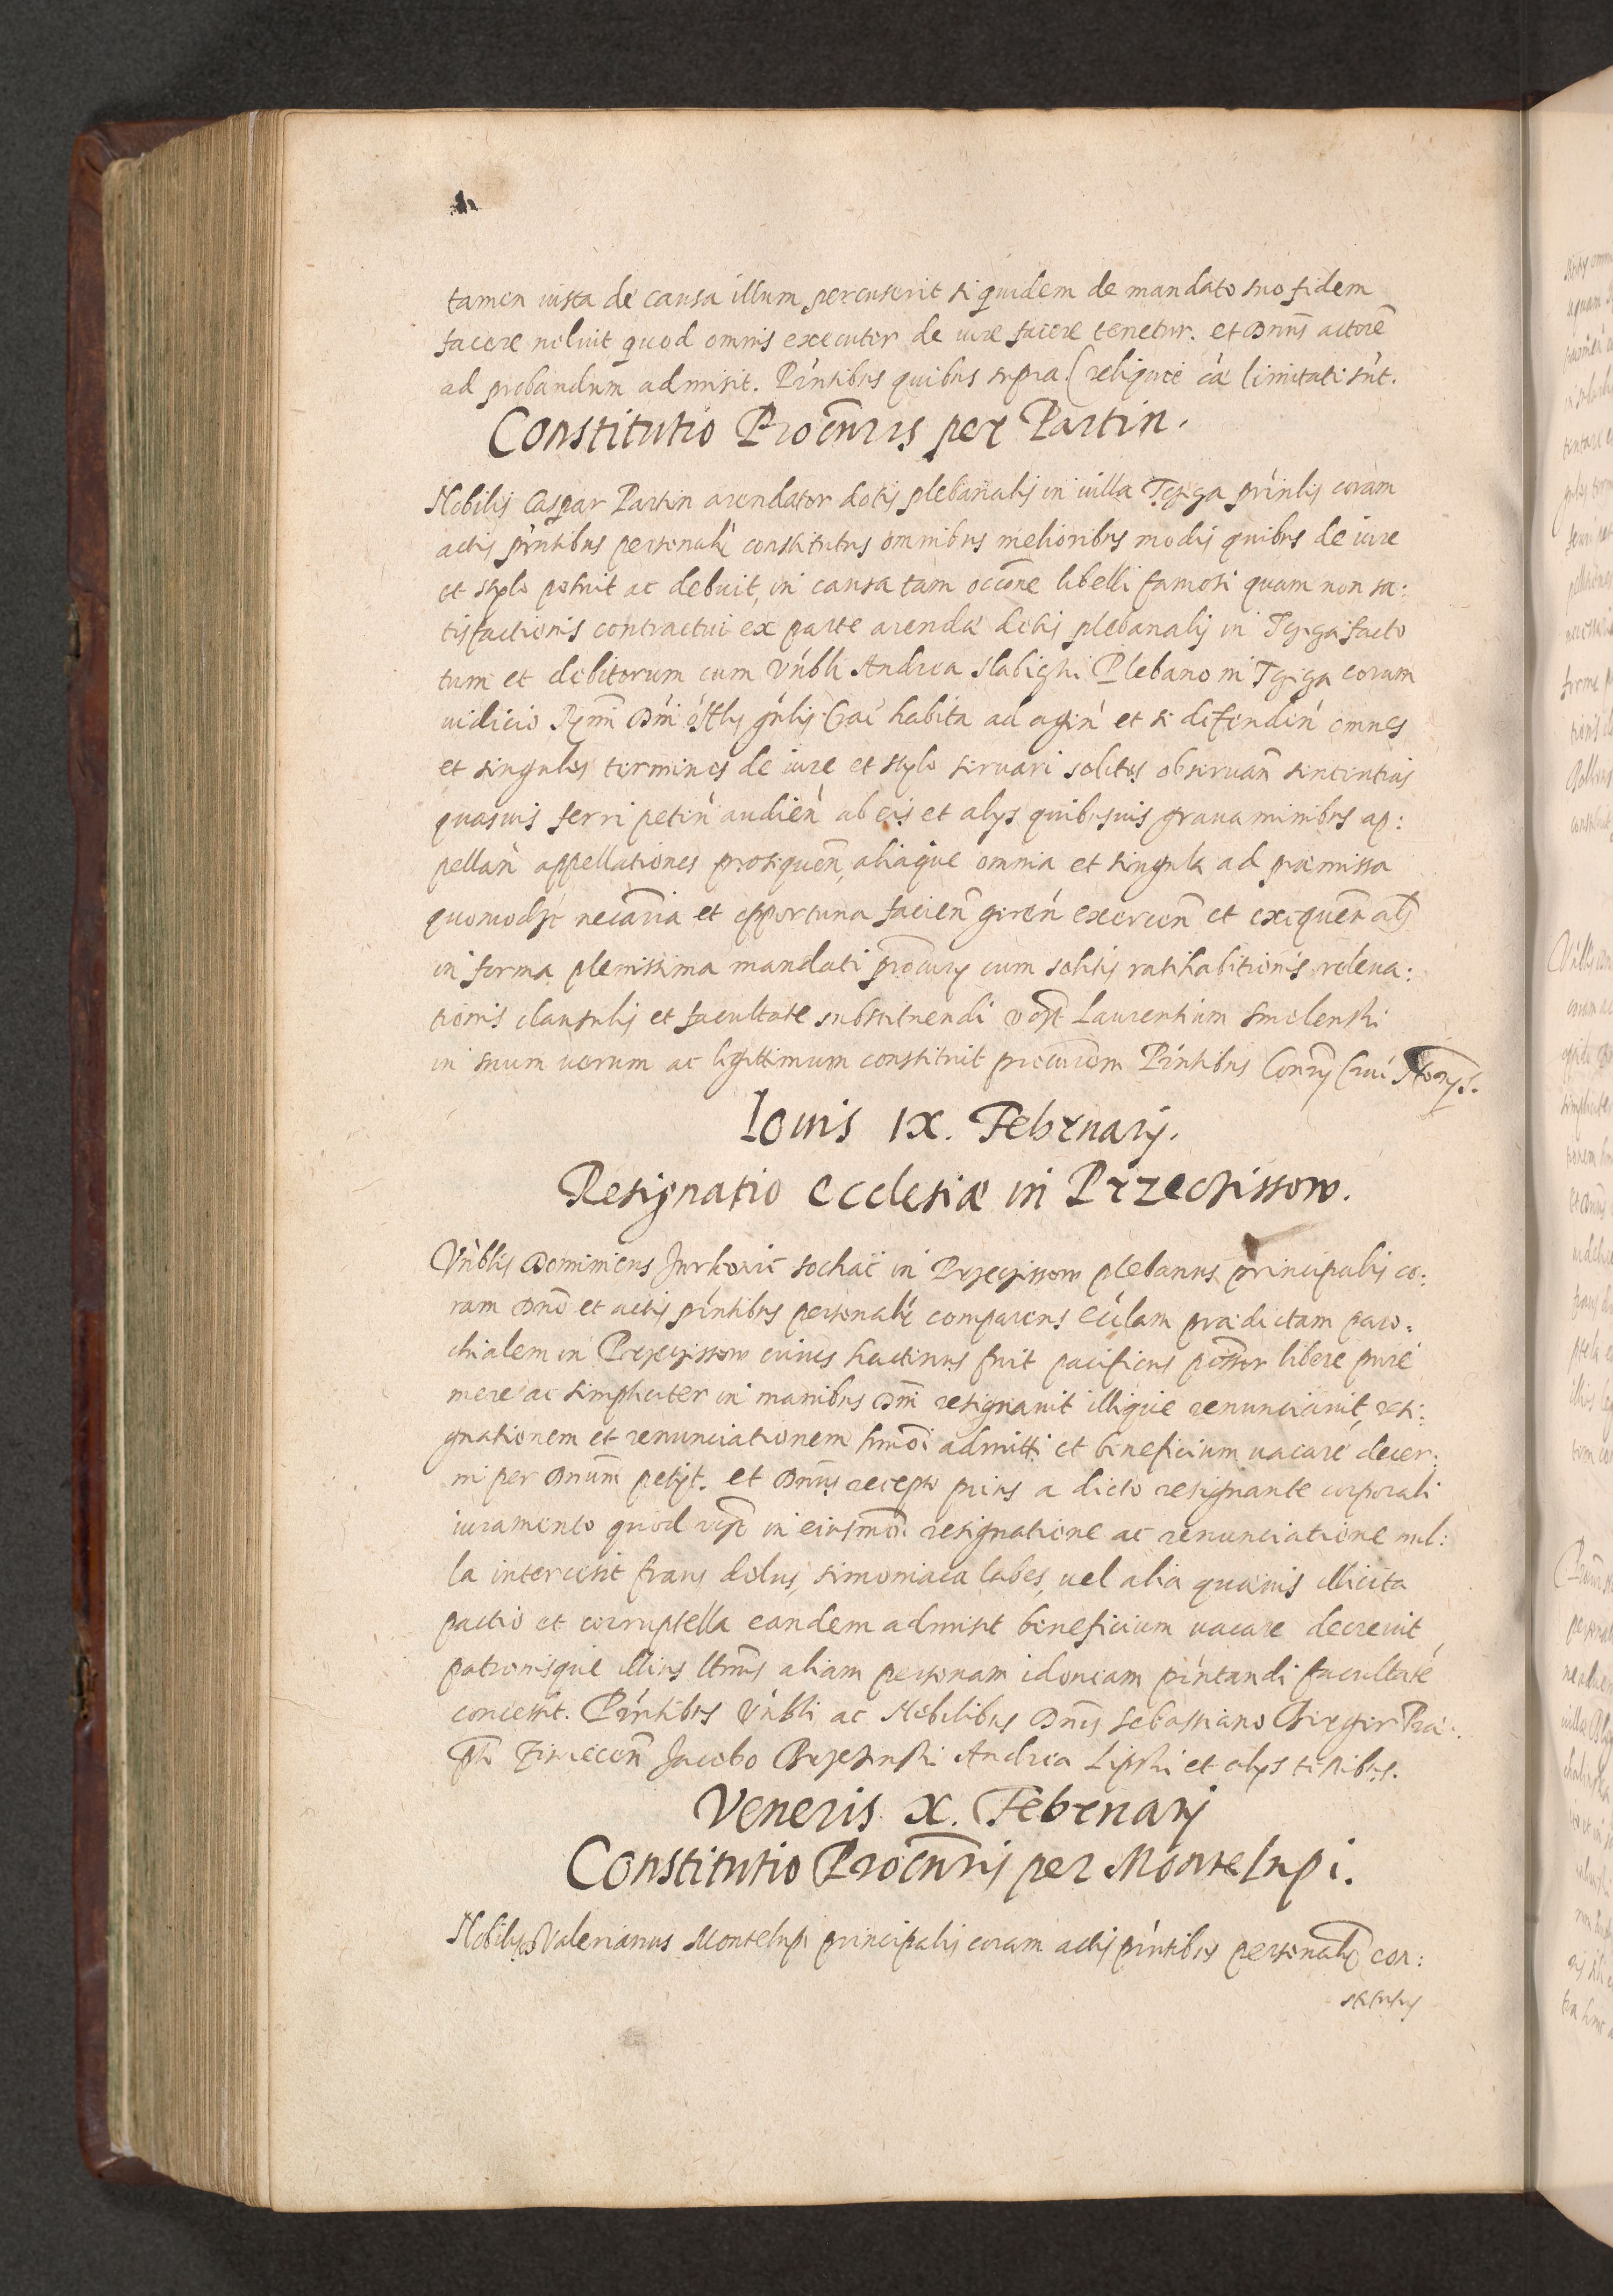 tamen iusta de causa illum percusserit siquidem de mandato suo fidem
facere noluit quod omnis executor de iure facere tenetur. et Dnus actorē
ad probandum admisit. Pńtibus quibus supra. (reliquae cā limitati sūt.
Constitutio Procūris per Partin.
Nobilis Caspar Partin arendator dotis plebanalis in villa Tęgoga prīnlis coram
actis pńtibus personalr̃ constitutus omnibus melioribus modis quibus de iure
et stylo potuit ac debuit, in causa tam occōne libelli famosi quam non sa:
tisfactionis contractui ex parte arendæ dotis plebanalis in facto
tum et debitorum cum Vńbli Andrea Slabighi Plebano in coram
iudicio Dni Crac̄ habita ad agēn et se defendēn omnes
et singulos terminos de iure et stylo servari solitos observan̄ sententias
quasvis ferri petēn audiēn ab eis et alys quibusvis gravaminibus ap:
pellan̄ appellationes prosequen̄, aliaque omnia et singula ad præmissa
quomodlt necāria et opportuna facien̄ geren̄ exercen̄ et exequen̄ als
in forma plenissima mandati procury cum solitis ratihabitionis releva:
tionis clausulis et facultate substituendi Laurentium Smolenski
in suum verum ac legittimum constituit procūrem Pńtibus
Iovis IX. Februarij.
Resignatio Ecclesiæ in Przecissow.
Vńblis Dominicus Jurkowic in plebanus principalis co:
ram Dno et actis pńtibus personalr̃ comparens ecc̄lam prædictam paro:
chialem in cuius hactenus fuit pacificus possor libere pure
mere ac simpliciter in manibus Dni resignavit illique renunciavit, resi:
gnationem et renunciationem hmōi admitti et beneficium vacare decer:
ni per Dnum petyt. et Dnus recepto prius a dicto resignante corporali
iuramento quod in eiusmōi resignatione ac renunciatione nul:
la intercessit fraus dolus, simoniaca labes, vel alia quævis illicita
pactio et corruptella eandem admisit beneficium vacare decrevit
patronisque illius lttmis aliam personam idoneam pńtandi facultatē
concessit. Pńtibus Vńbli ac Nobilibus Dnis Sebastiano Præ:
Jacobo Andrea Lipski et alys testibus.
Veneris X. Februarij
Constitutio Procūris per Montelupi.
Nobilis Valerianus Montelupi principalis coram actis pńtibus personalr̃ con:
stitutus